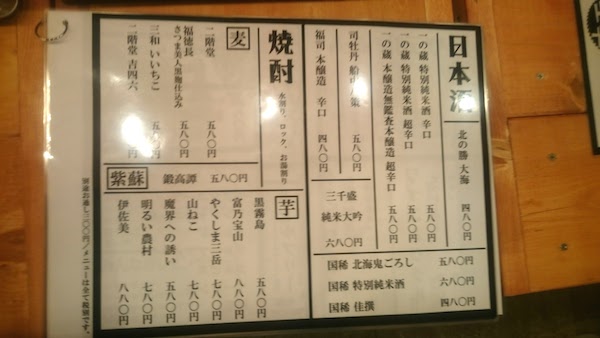 日本酒
北の勝 大海 四八〇円
一の蔵 特別純米酒 辛口 五八〇円
一の蔵 特別純米酒 超辛口 五八〇円
一の蔵 本醸造無鑑査本醸造 超辛口 五八〇円
司牡丹 船中八策 五八〇円
福司 本醸造 辛口 四八〇円
三千盛
純米大吟
六八〇円
国稀 北海鬼ごろし 五八〇円
国稀 特別純米酒 六八〇円
国稀 佳撰 四八〇円
焼酎 水割り、ロック、お湯割り
麦
二階堂 五八〇円
福徳長
さつま美人黒麹仕込み 五八〇円
三和 いいちこ 五八〇円
二階堂 吉四六 八〇円
紫蘇 鍛高譚 五八〇円
芋
黒霧島 五八〇円
富乃宝山 八八〇円
やくしま三岳 七八〇円
山ねこ 七八〇円
魔界への誘い 五八〇円
明るい農村 七八〇円
伊佐美 八八〇円
別途お通し三〇〇円／メニューは全て税別です。